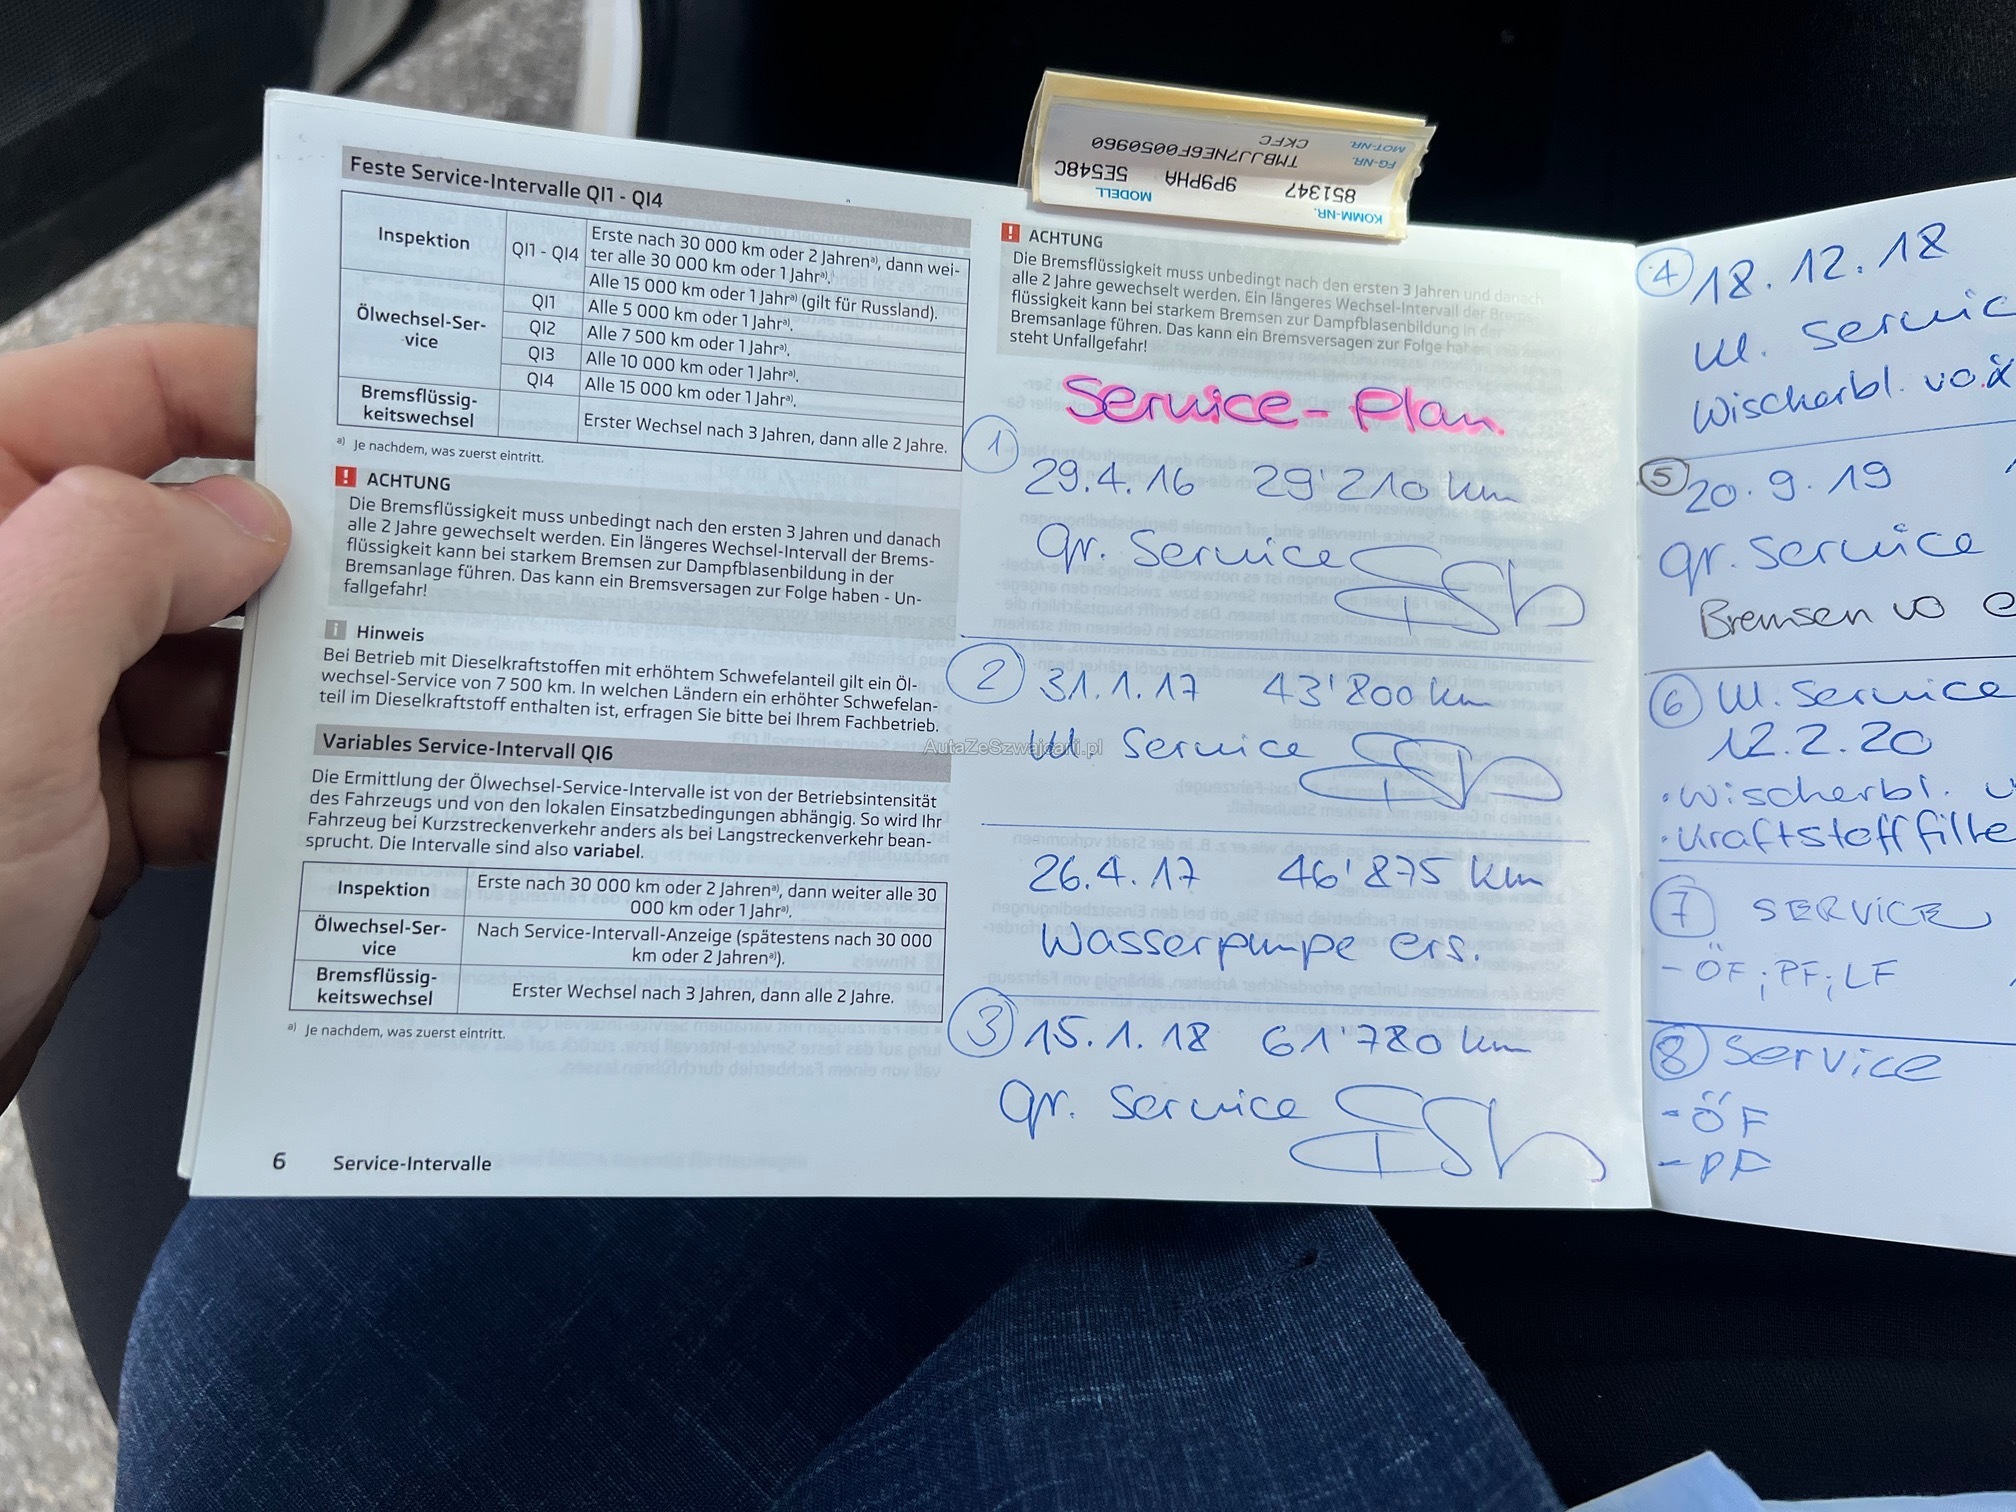 Feste Service-Intervalle QI1 - QI4
Inspektion
QI1 - QI4
Erste nach 30 000 km oder 2 Jahrenᵃ⁾, dann wei-
ter alle 30 000 km oder 1 Jahrᵃ⁾.
Alle 15 000 km oder 1 Jahrᵃ⁾ (gilt für Russland).
Ölwechsel-Ser-
vice
QI1 Alle 5 000 km oder 1 Jahrᵃ⁾.
QI2 Alle 7 500 km oder 1 Jahrᵃ⁾.
QI3 Alle 10 000 km oder 1 Jahrᵃ⁾.
QI4 Alle 15 000 km oder 1 Jahrᵃ⁾.
Bremsflüssig-
keitswechsel
Erster Wechsel nach 3 Jahren, dann alle 2 Jahre.
ᵃ⁾ Je nachdem, was zuerst eintritt.
! ACHTUNG
Die Bremsflüssigkeit muss unbedingt nach den ersten 3 Jahren und danach
alle 2 Jahre gewechselt werden. Ein längeres Wechsel-Intervall der Brems-
flüssigkeit kann bei starkem Bremsen zur Dampfblasenbildung in der
Bremsanlage führen. Das kann ein Bremsversagen zur Folge haben - Un-
fallgefahr!
i Hinweis
Bei Betrieb mit Dieselkraftstoffen mit erhöhtem Schwefelanteil gilt ein Öl-
wechsel-Service von 7 500 km. In welchen Ländern ein erhöhter Schwefelan-
teil im Dieselkraftstoff enthalten ist, erfragen Sie bitte bei Ihrem Fachbetrieb.
Variables Service-Intervall QI6
Die Ermittlung der Ölwechsel-Service-Intervalle ist von der Betriebsintensität
des Fahrzeugs und von den lokalen Einsatzbedingungen abhängig. So wird Ihr
Fahrzeug bei Kurzstreckenverkehr anders als bei Langstreckenverkehr bean-
sprucht. Die Intervalle sind also variabel.
Inspektion
Erste nach 30 000 km oder 2 Jahrenᵃ⁾, dann weiter alle 30
000 km oder 1 Jahrᵃ⁾.
Ölwechsel-Ser-
vice
Nach Service-Intervall-Anzeige (spätestens nach 30 000
km oder 2 Jahrenᵃ⁾).
Bremsflüssig-
keitswechsel
Erster Wechsel nach 3 Jahren, dann alle 2 Jahre.
ᵃ⁾ Je nachdem, was zuerst eintritt.
6 Service-Intervalle
KOMM-NR. MODELL
851347 9P9PHA 5E548C
FG-NR. TMBJJ7NE6F0050960
MOT-NR. CKFC
! ACHTUNG
Die Bremsflüssigkeit muss unbedingt nach den ersten 3 Jahren und danach
alle 2 Jahre gewechselt werden. Ein längeres Wechsel-Intervall der Brems-
flüssigkeit kann bei starkem Bremsen zur Dampfblasenbildung in der
Bremsanlage führen. Das kann ein Bremsversagen zur Folge haben - es be-
steht Unfallgefahr!
Service-Plan
1 29.4.16 29'210 km
gr. Service
2 31.1.17 43'800 km
kl. Service
26.4.17 46'875 km
Wasserpumpe ers.
3 15.1.18 61'780 km
gr. Service
AutaZeSzwajcarii.pl
4 18.12.18
kl. Servic
Wischerbl. vo.
5 20.9.19
gr. Service
Bremsen vo
6 kl. Service
12.2.20
• Wischerbl.
• Kraftstofffilte
7 SERVICE
- ÖF; PF; LF
8 Service
- ÖF
- PF